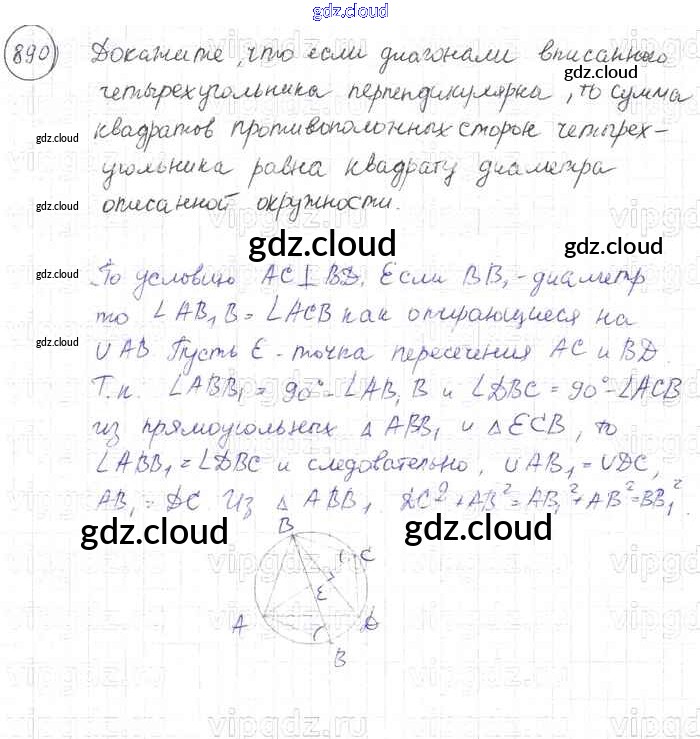 gdz.cloud
890 Докажите, что если диагонали вписанного
gdz.cloud
четырехугольника перпендикулярна, то сумма
gdz.cloud
квадратов противоположных сторон четырех-
угольника равна квадрату диаметра
gdz.cloud
описанной окружности.
vipgdz.ru
gdz.cloud
gdz.cloud
gdz.cloud
По условию AC⊥BD. Если BB₁ - диаметр
то ∠AB₁B = ∠ACB как опирающиеся на
gdz.cloud
∪AB Пусть E - точка пересечения AC и BD.
Т.к. ∠ABB₁ = 90° - ∠AB₁B и ∠DBC = 90° - ∠ACB
из прямоугольных △ABB₁ и △ECB, то
∠ABB₁ = ∠DBC и следовательно, ∪AB₁ = ∪DC,
AB₁ = DC. Из △ABB₁. DC² + AB² = AB₁² + AB² = BB₁².
gdz.cloud
gdz.cloud
B
C
E
A
D
B
vipgdz.ru